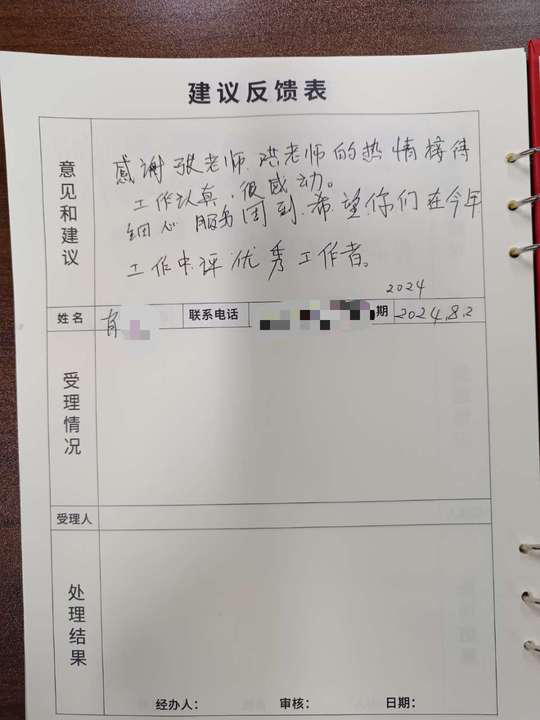 建议反馈表
意见和建议
感谢张老师.洪老师的热情接待
工作认真.很感动。
细心 服务周到.希望你们在今年
工作中评优秀工作者。
2024
姓名 联系电话 期 2024.8.2
受理情况
受理人
处理结果
经办人： 审核： 日期：